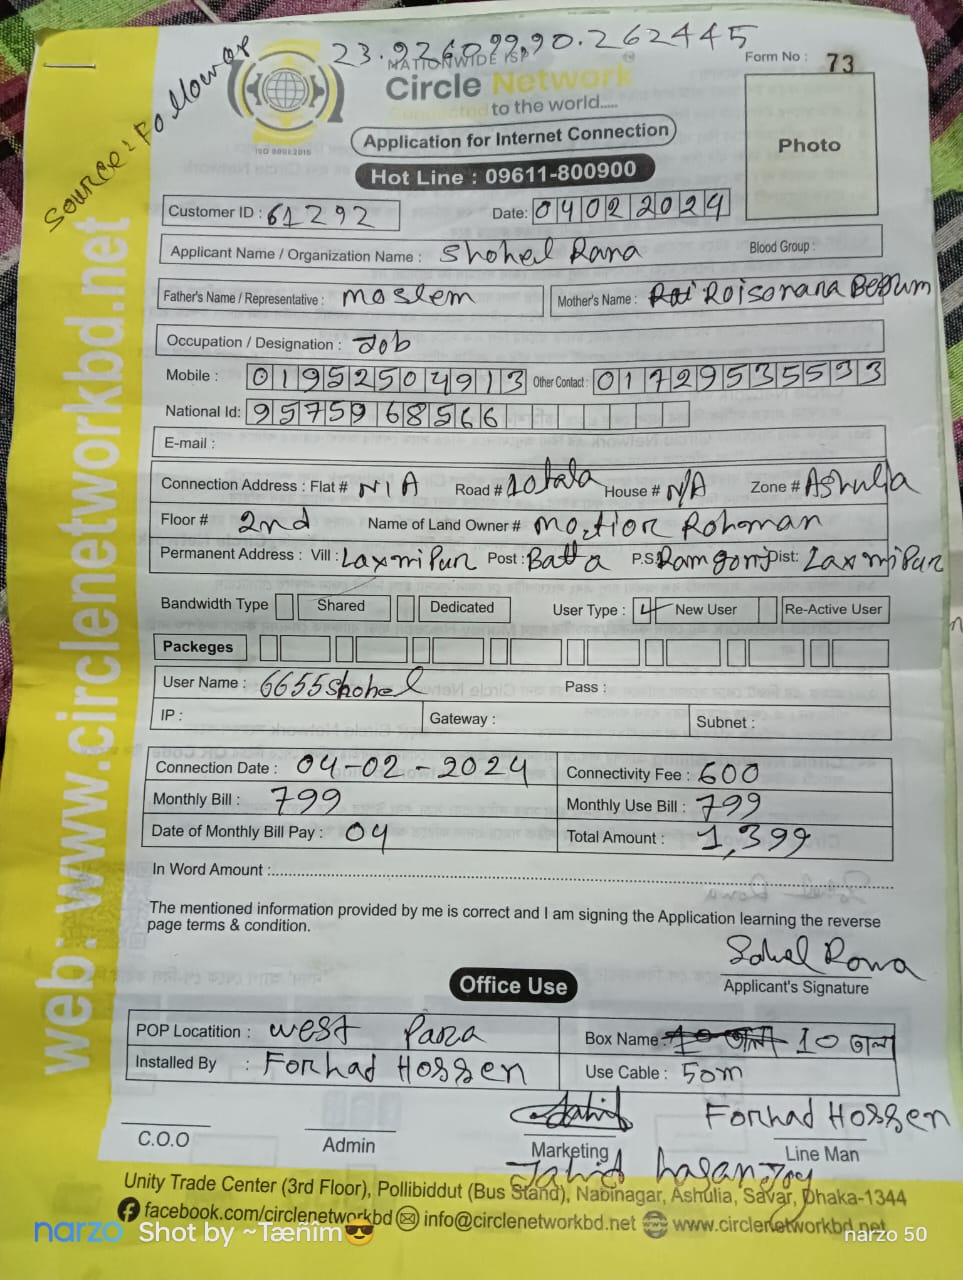 23.926099,90.262445
Source: Follower
NATIONWIDE ISP
Circle Network
Connected to the world.....
ISO 9001:2015
Form No : 73
Photo
Application for Internet Connection
Hot Line : 09611-800900
Customer ID : 61292
Date: 04022024
Applicant Name / Organization Name : Shohel Rana
Blood Group :
Father's Name / Representative : moslem
Mother's Name : Roisonana Begum
Occupation / Designation : Job
Mobile : 01952504913 Other Contact : 01729535593
National Id: 9575968566
E-mail :
Connection Address : Flat # N/A Road # 10tala House # N/A Zone # Ashulia
Floor # 2nd Name of Land Owner # motior Rohman
Permanent Address : Vill : Laxmipur Post : Batta P.S: Ramgonj Dist: Laxmipur
Bandwidth Type Shared Dedicated User Type : New User Re-Active User
Packeges
User Name : 6655shohel Pass :
IP : Gateway : Subnet :
Connection Date : 04-02-2024 Connectivity Fee : 600
Monthly Bill : 799 Monthly Use Bill : 799
Date of Monthly Bill Pay : 04 Total Amount : 1,399
In Word Amount :
The mentioned information provided by me is correct and I am signing the Application learning the reverse
page terms & condition.
Sohel Rana
Applicant's Signature
Office Use
POP Locatition : west Para Box Name : 10 তলা
Installed By : Forhad Hossen Use Cable : 50m
Jahid Forhad Hossen
C.O.O Admin Marketing Line Man
Jahid hasan Joy
Unity Trade Center (3rd Floor), Pollibiddut (Bus Stand), Nabinagar, Ashulia, Savar, Dhaka-1344
facebook.com/circlenetworkbd info@circlenetworkbd.net www.circlenetworkbd.net
web: www.circlenetworkbd.net
narzo Shot by ~Tæñîm😎 narzo 50